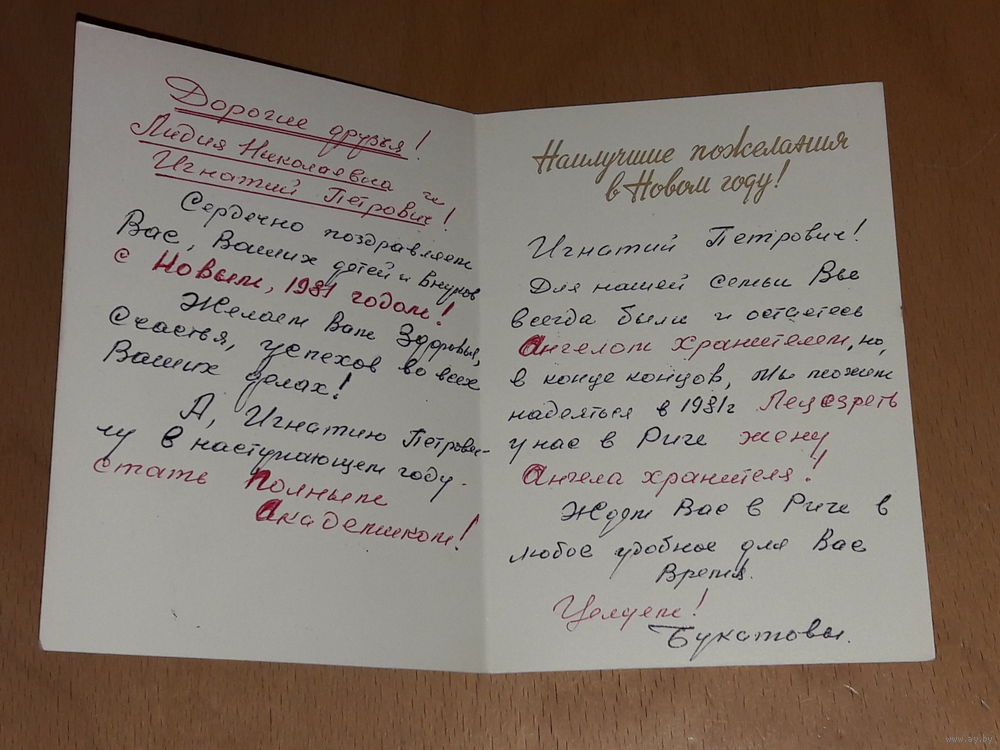 Дорогие друзья!
Лидия Николаевна и
Игнатий Петрович!
Сердечно поздравляем
Вас, Ваших детей и Внуков
с Новым, 1981 годом!
Желаем Вам Здоровья,
Счастья, успехов во всех
Ваших делах!
А, Игнатию Петрови-
чу в наступающем году -
стать Полным
Академиком!
Наилучшие пожелания
в Новом году!
Игнатий Петрович!
Для нашей семьи Вы
всегда были и остаетесь
Ангелом хранителем, но,
в конце концов, мы можем
надеяться в 1981г Лецезреть
у нас в Риге жену
Ангела хранителя!
Ждем Вас в Риге в
любое удобное для Вас
Время.
Целуем!
Букатовы.
www.ay.by